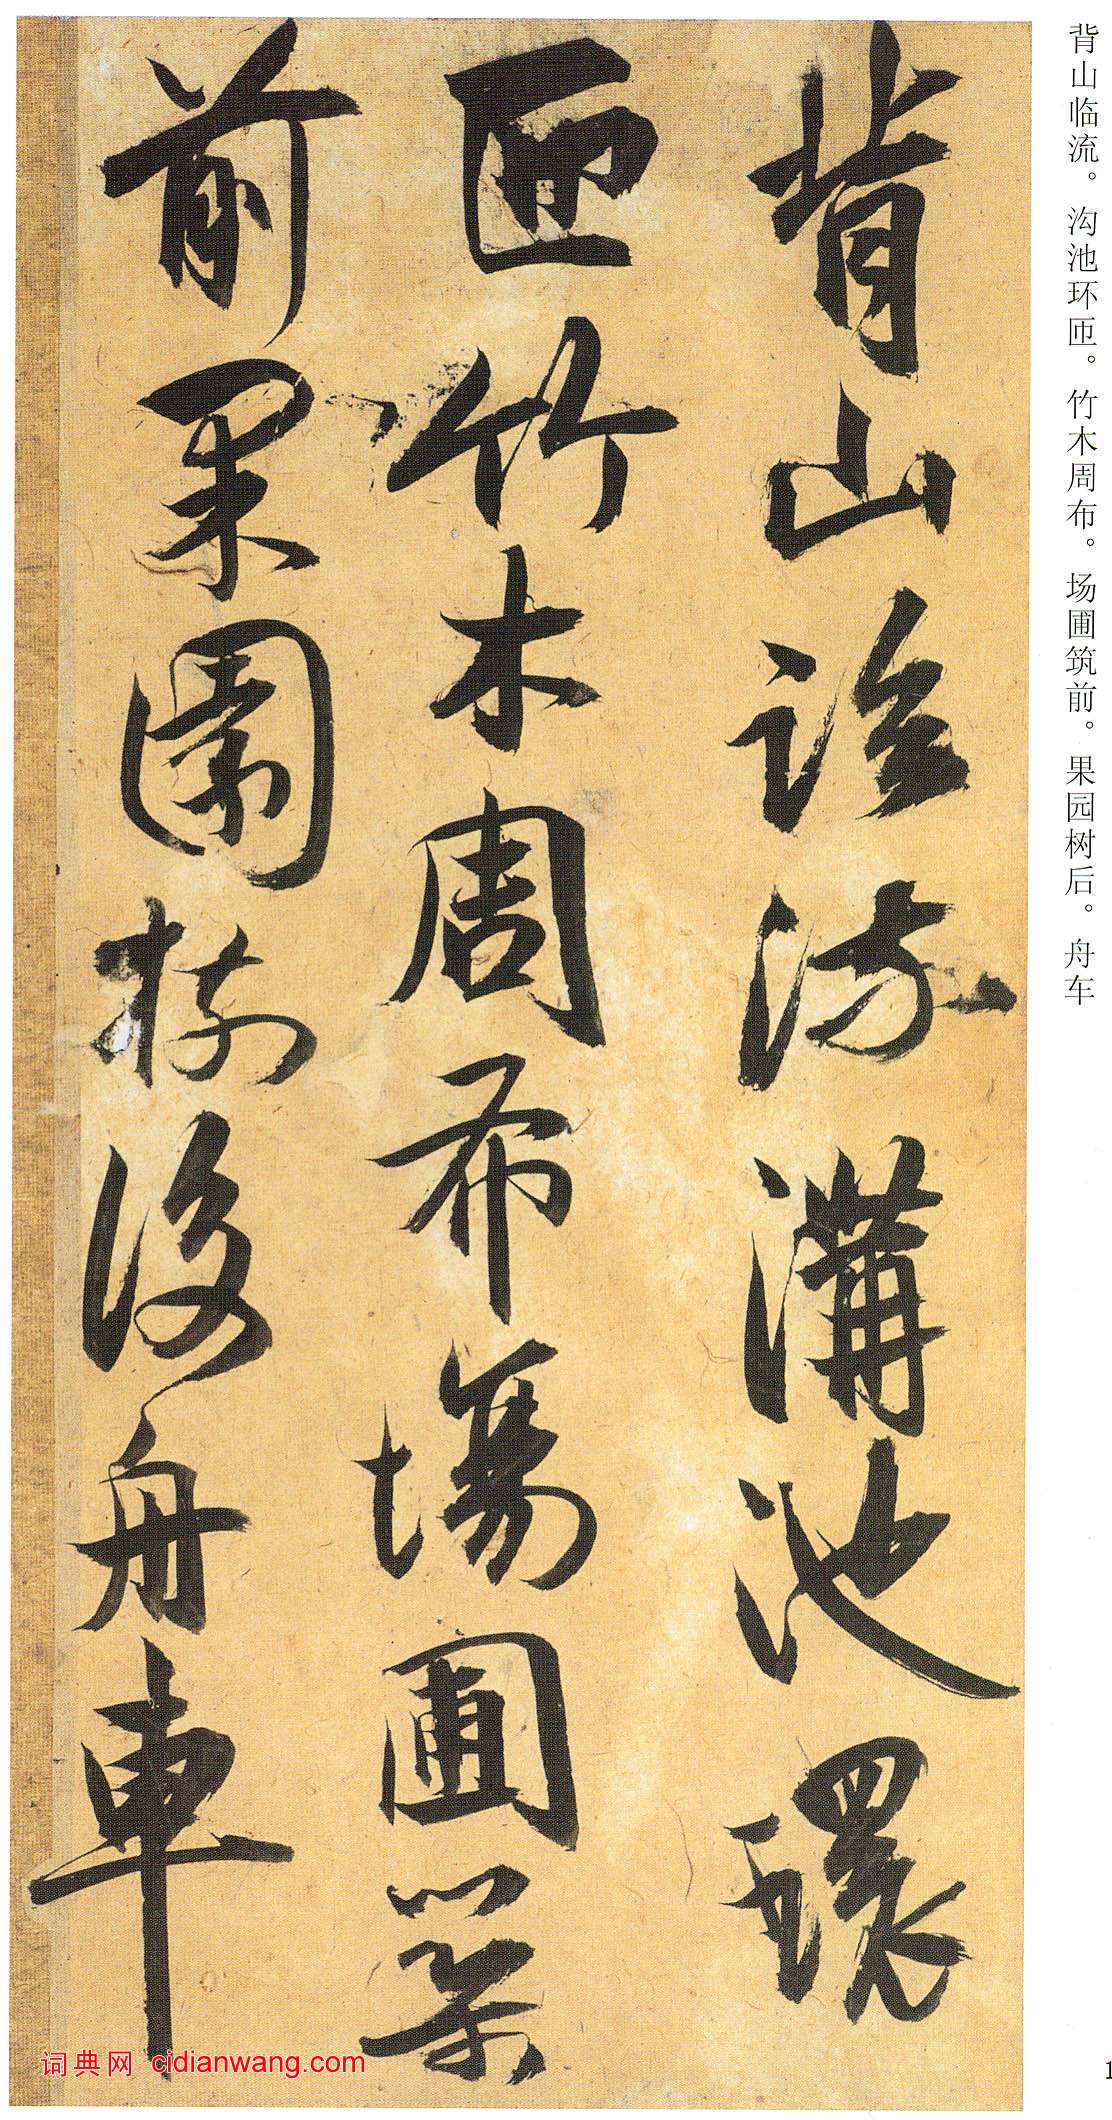 背山临流。沟池环匝。竹木周布。场圃筑前。果园树后。舟车
背山臨流溝池環
匝竹木周布場圃築
前果園樹後舟車
词典网 cidianwang.com
1